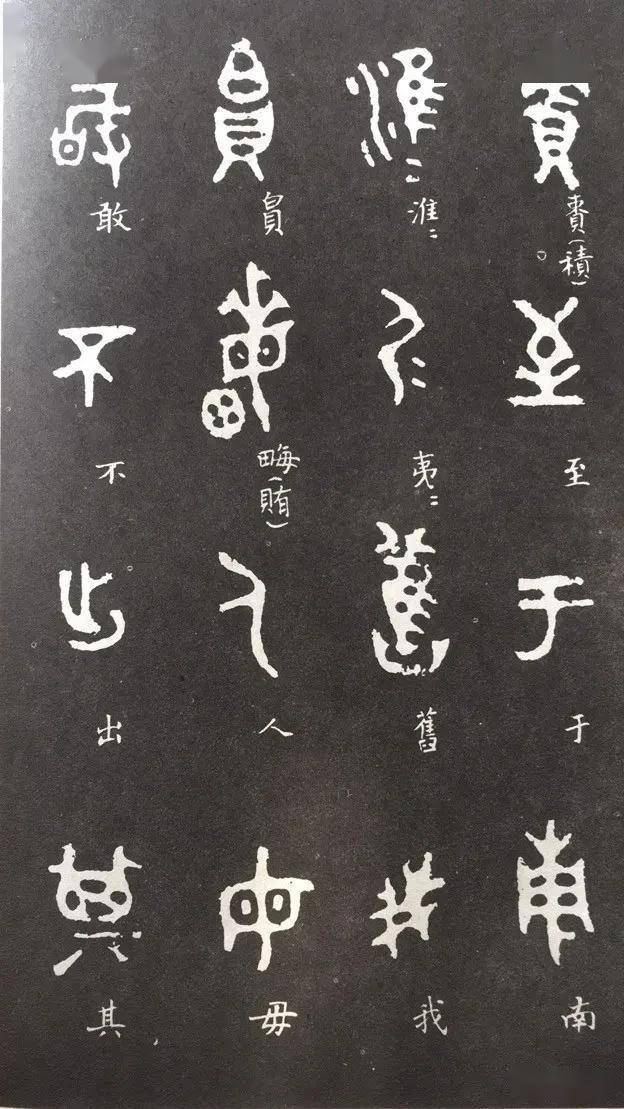 責(積)至于南
淮﹦夷﹦舊我
員畮(賄)人毋
敢不出其